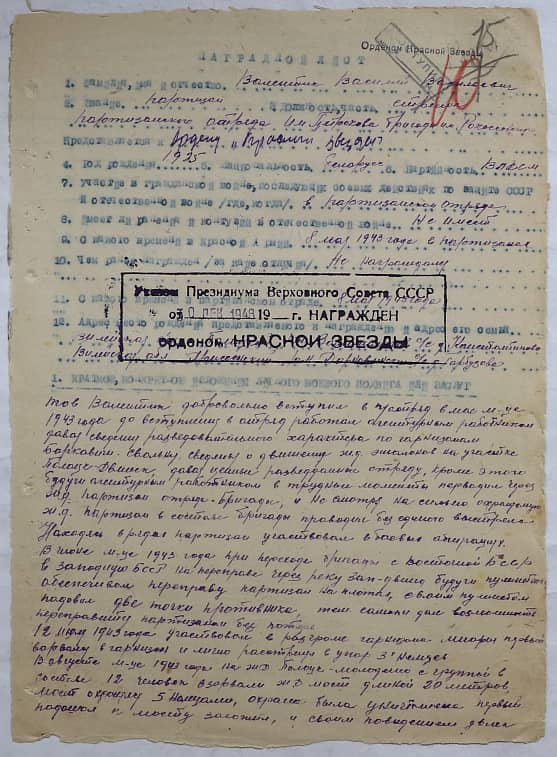 Орденом Красной Звезды
15
10
НАГРАДНОЙ ЛИСТ
1. Фамилия, имя и отчество Валентик Василий
2. Звание партизан и должность, часть стрелок
партизанского отряда им. бригады Рокоссовского
Представляется к ордену "Красной Звезды"
4. Год рождения 1925 5. Национальность Беларус 6. Партийность ВЛКСМ
7. Участие в гражданской войне, последующих боевых действиях по защите СССР
и отечественной войне /где, когда/ в партизанском отряде
8. Имеет ли ранения и контузии в отечественной войне Не имеет
9. С какого времени в Красной Армии 8 мая 1943 года в партизанах
10. Чем ранее награжден /за какие отличия/ Не награждался
Указом Президиума Верховного Совета СССР
11. С какого времени в партизанском отряде 8 мая 1943 года
от 30 ДЕК 1948 19 г. НАГРАЖДЕН
12. Адрес место рождения представляемого к награждению и адрес его семьи
орденом КРАСНОЙ ЗВЕЗДЫ
с/с д Константиново
обл р-н с/с
1. КРАТКОЕ, КОНКРЕТНОЕ ИЗЛОЖЕНИЕ ЛИЧНОГО БОЕВОГО ПОДВИГА ИЛИ ЗАСЛУГ
тов Валентик добровольно вступил в п/отряд в мае м-це
1943 года до вступления в отряд работал агентурным работником
давал сведения разведовательного характера по гарнизонам
сведения о движении жд. эшелонов на участке
Полоцк-Двинск, давал ценные разведданные отряду, кроме этого
будучи агентурным работником в трудные моменты переводил через
жд партизан отряда-бригады, и не смотря на сильно охраняемую
ж.д. партизан в составе бригады проводил без единого выстрела
Находясь в рядах партизан участвовал в боевых операциях.
В июне м-це 1943 года при переходе бригады с Восточной БССР
в западную БССР на переправе через реку Зап-Двина будучи пулеметчик
обеспечивал переправу партизан на плотах, своим пулеметом
подавил две точки противника, тем самым дал возможность
переправится партизанам без потерь
12 июля 1943 года участвовал в разгроме гарнизона первый
ворвался в гарнизон и лично расстрелял в упор 3х немцев
В августе м-це 1943 года на ЖД Полоцк-Молодечно с группой в
составе 12 человек взорвали ЖД мост длиной 20 метров,
мост охраняло 5 немцев, охрана была уничтожена первый
подошел к мосту заложил, и своим поведением увлек